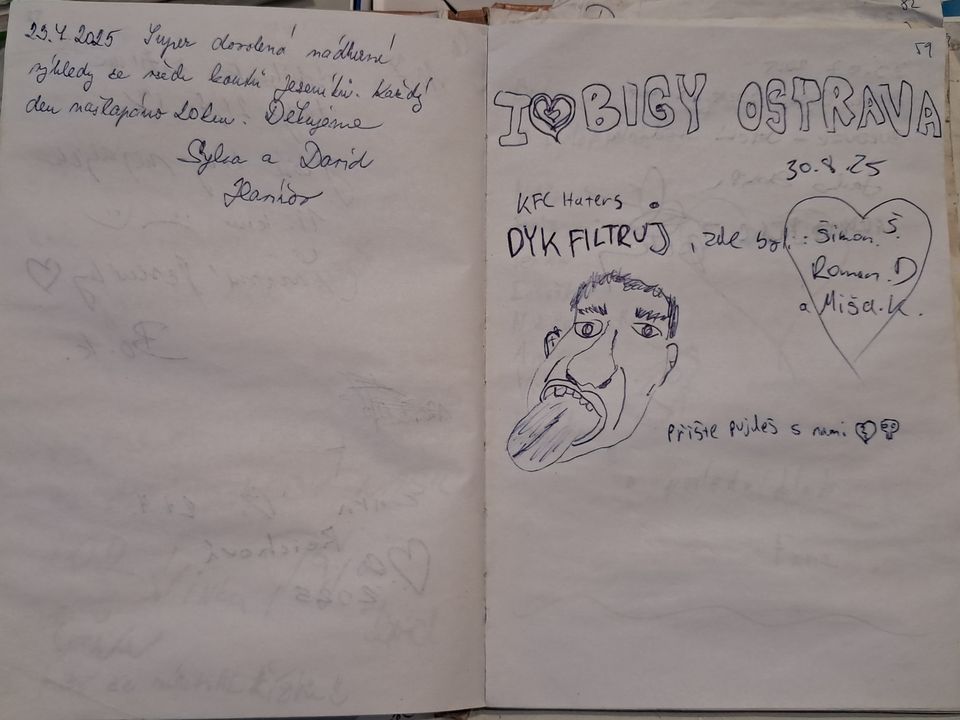 23.7.2025 Super dovolená nádherné
výhledy ze všech koutů Jeseníků. Každý
den našlapáno 20km. Děkujeme
Sylva a David
59
I BIGY OSTRAVA
30.8.25
KFC Haters
DYK FILTRUJ, zde byl: Šimon.Š.
Roman.D
a Míša.K.
příště pujdeš s nami